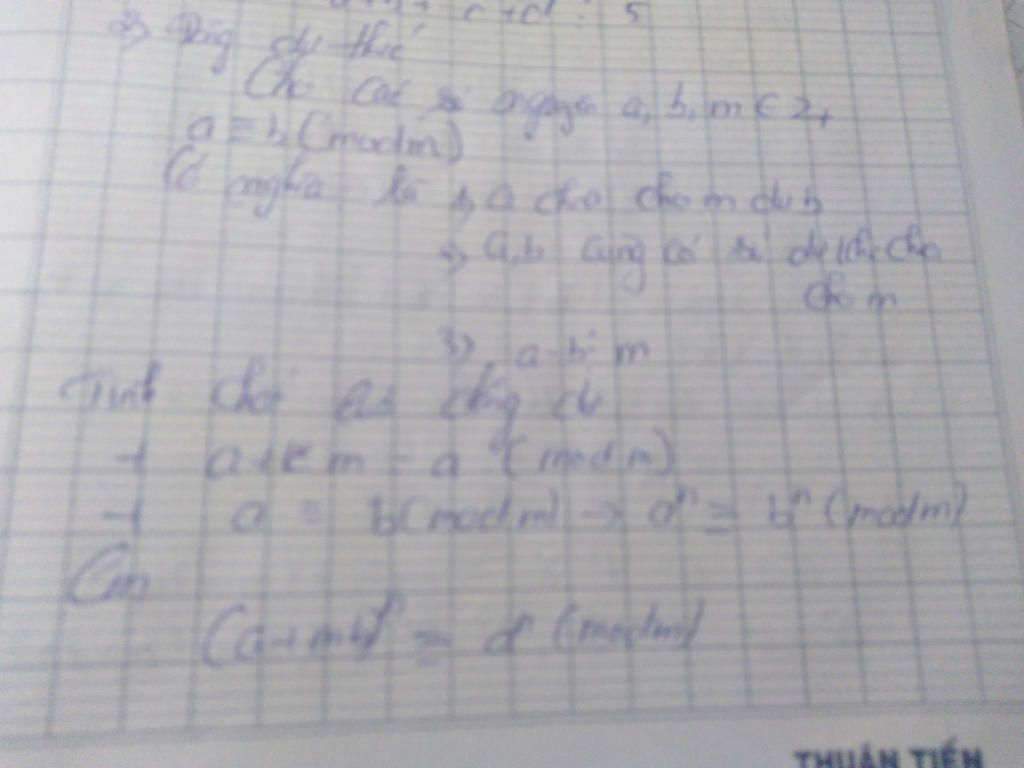 c+d ⋮ 5
2) Đồng dư thức
Cho các số nguyên a, b, m ∈ Z,
a ≡ b (mod m)
Có nghĩa là 1) a chia cho m dư b
2) a, b cùng có số dư khi chia
cho m
3) a - b ⋮ m
Tính chất của đồng dư
+ a + k m = a (mod m)
+ a ≡ b (mod m) → aⁿ ≡ bⁿ (mod m)
Cm
(a + mb)ⁿ ≡ aⁿ (mod m)
THUẬN TIẾN